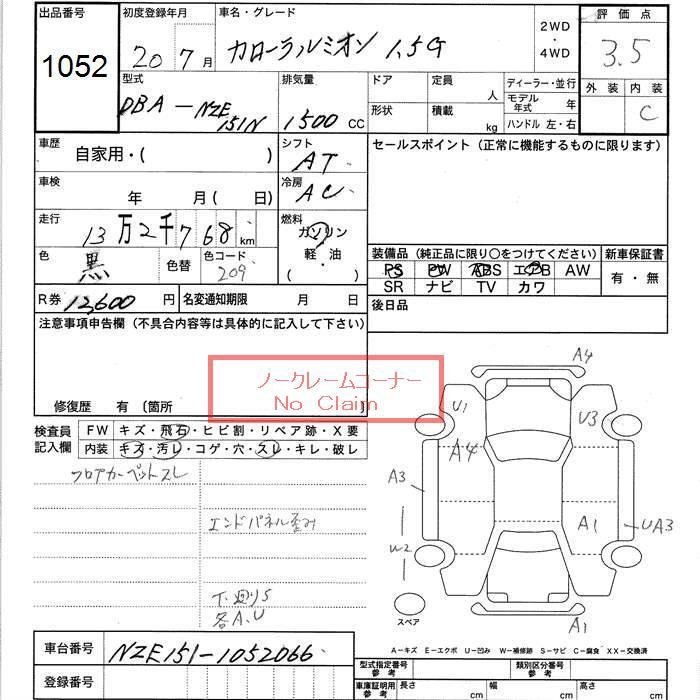 出品番号
1052
初度登録年月
20 7月
車名・グレード
カローラルミオン 1.5G
2WD
・
4WD
評価点
3.5
外装 内装
C
型式
DBA-NZE
151N
排気量
1500 CC
ドア
定員
人
形状
積載
kg
ディーラー・並行
モデル年式 年
ハンドル 左・右
車歴
自家用・( )
シフト
AT
車検
年 月 ( 日)
冷房
AC
走行
13万2千768 km
燃料
ガソリン
軽・油
( )
色
黒
色替
色コード
209
R券
12,600 円
名変通知期限
月 日
セールスポイント (正常に機能するものに限ります)
装備品 (純正品に限り〇をつけてください)
PS PW ABS エアB AW
SR ナビ TV カワ
新車保証書
有・無
後日品
注意事項申告欄 (不具合内容等は具体的に記入して下さい)
ノークレームコーナー
No Claim
修復歴 有 〔箇所 〕
検査員
記入欄
FW キズ・飛石・ヒビ割・リペア跡・X要
内装 キズ・汚レ・コゲ・穴・スレ・キレ・破レ
フロアカーペットスレ
エンドパネル歪み
下廻りS
各A.U
A4
U1
U3
A4
A3
A1
UA3
W2
スペア
A1
A-キズ E-エクボ U-凹み W-補修跡 S-サビ C-腐食 XX-交換済
車台番号
NZE151-1052066
登録番号
型式指定番号
参考
類別区分番号
参考
車庫証明用
参考
長さ
cm
幅
cm
高さ
cm